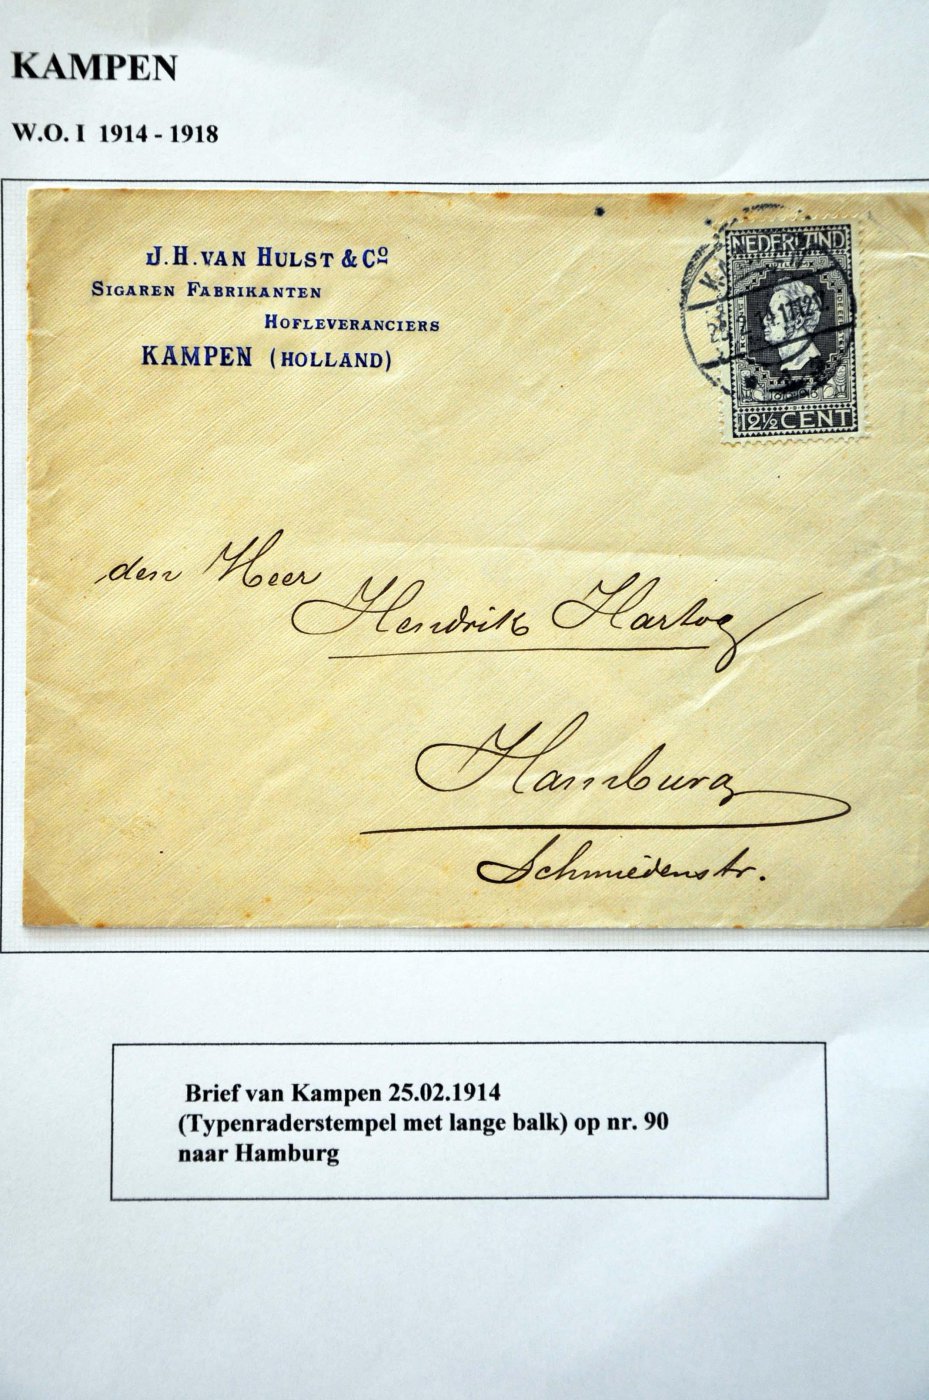 KAMPEN
W.O. I 1914 - 1918
J.H. VAN HULST & Cº
SIGAREN FABRIKANTEN
HOFLEVERANCIERS
KAMPEN (HOLLAND)
NEDERLAND
12½ CENT
den Heer
Hendrik Hartog
Hamburg
Schmiedenstr.
Brief van Kampen 25.02.1914
(Typenraderstempel met lange balk) op nr. 90
naar Hamburg